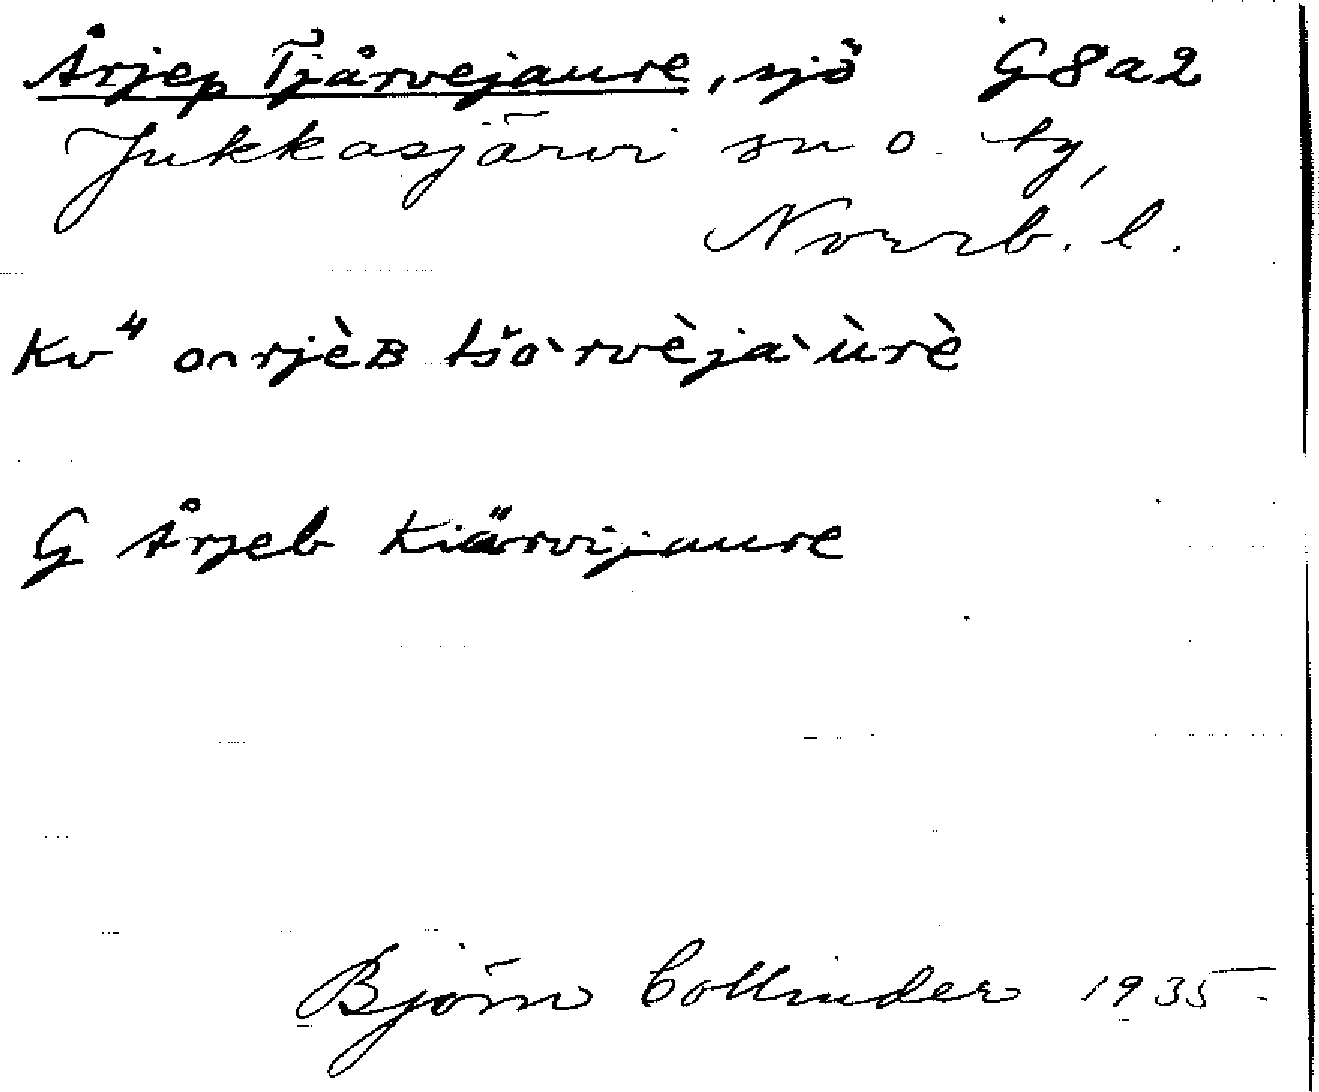 Årjep Tjårvejaure, sjö G8a2
Jukkasjärvi sn o. tg,
Norrb. l.
Kv⁴ oʌrjèB tšòrvèjàùrè
G Årjeb Kiärvijaure
Björn Collinder 1935.